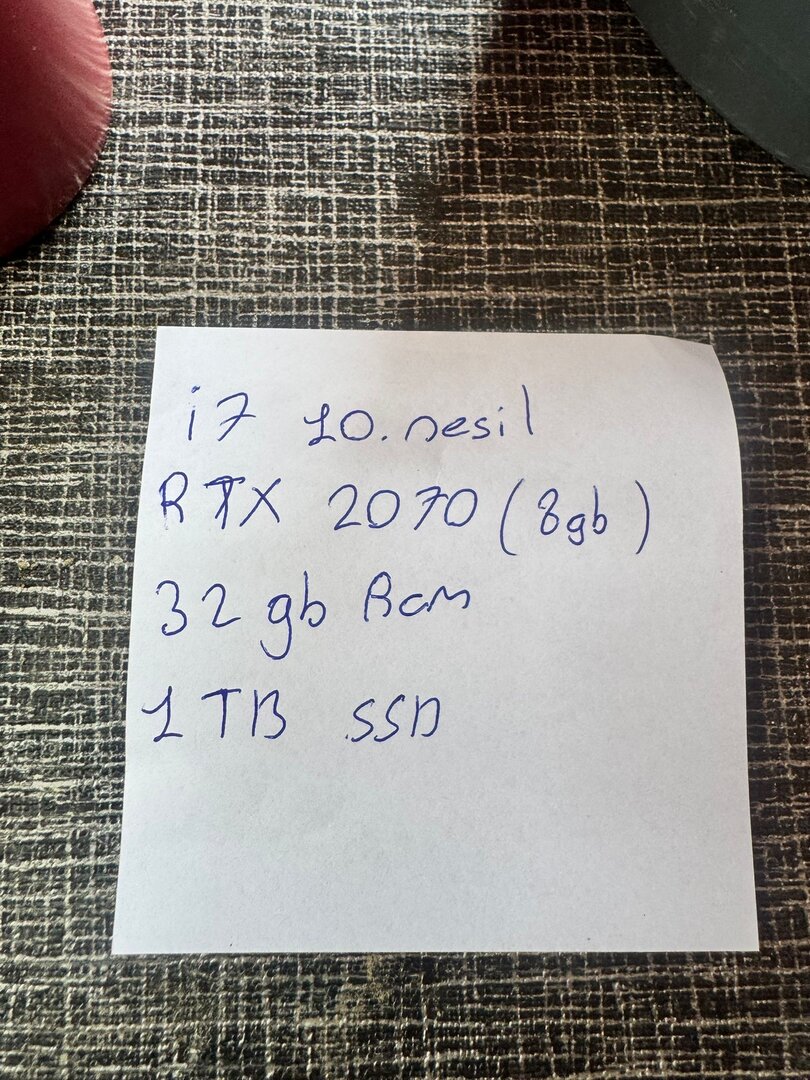 i7 10.nesil
RTX 2070 (8gb)
32 gb Ram
1 TB SSD